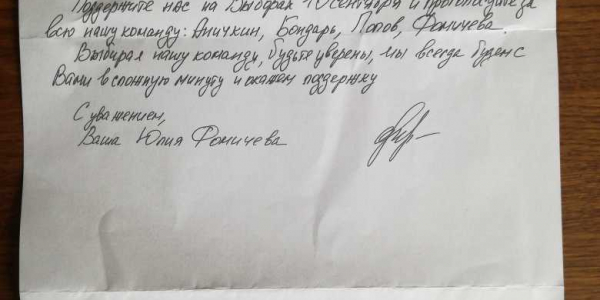 Поддержите нас на Выборах 10 сентября и проголосуйте за
всю нашу команду: Аничкин, Бондарь, Попов, Фомичева.
Выбирая нашу команду, будьте уверены, мы всегда будем с
Вами в сложную минуту и окажем поддержку
С уважением,
Ваша Юлия Фомичева